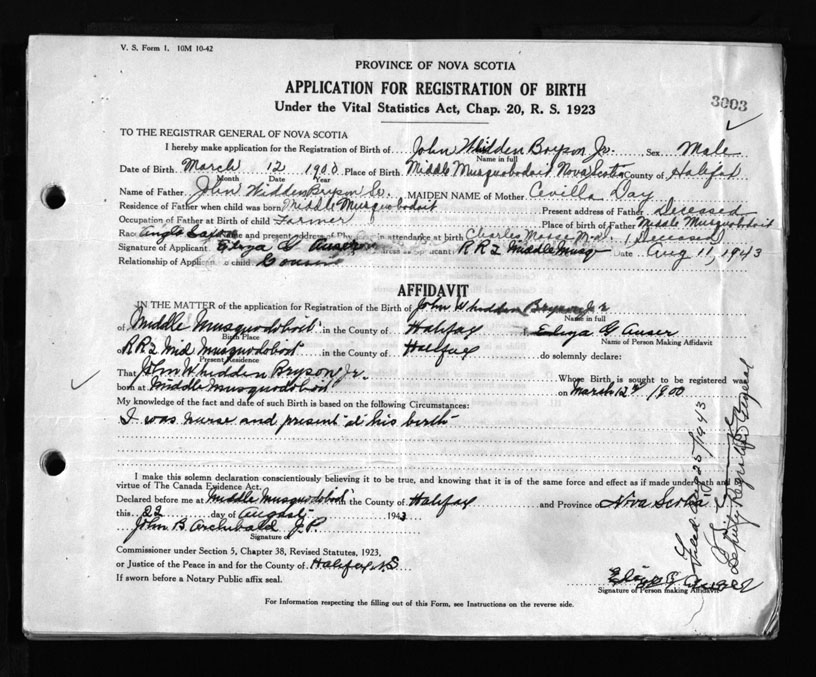 V. S. Form 1. 10M 10-42
PROVINCE OF NOVA SCOTIA
APPLICATION FOR REGISTRATION OF BIRTH
Under the Vital Statistics Act, Chap. 20, R. S. 1923
3003
TO THE REGISTRAR GENERAL OF NOVA SCOTIA
I hereby make application for the Registration of Birth of John Whidden Bryson Jr. Sex Male
Name in full
Date of Birth March 12 1900 Place of Birth Middle Musquodoboit Nova Scotia County of Halifax
Month Date Year
Name of Father John Whidden Bryson Sr. MAIDEN NAME of Mother Cevilla Day
Residence of Father when child was born Middle Musquodoboit Present address of Father Deceased
Occupation of Father at Birth of child Farmer Place of birth of Father Middle Musquodoboit
Race Anglo Saxon and present address of in attendance at birth Charles M.D. (Deceased)
Signature of Applicant of Applicant R R 2 Middle Musq Date Aug 11, 1943
Relationship of Applicant to child Cousin
AFFIDAVIT
IN THE MATTER of the application for Registration of the Birth of John Whidden Bryson Jr
Name in full
of Middle Musquodoboit in the County of Halifax
Birth Place Name of Person Making Affidavit
of R R 2 Mid Musquodoboit in the County of Halifax do solemnly declare:
Present Residence
That John Whidden Bryson Jr. Whose Birth is sought to be registered was
born at Middle Musquodoboit on March 12th 1900
My knowledge of the fact and date of such Birth is based on the following Circumstances:
I was nurse and present at his birth
I make this solemn declaration conscientiously believing it to be true, and knowing that it is of the same force and effect as if made under oath and
virtue of The Canada Evidence Act.
Declared before me at Middle Musquodoboit in the County of Halifax and Province of Nova Scotia
this 22 day of August 1943
John B. Archibald J.P.
Signature of
Commissioner under Section 5, Chapter 38, Revised Statutes, 1923,
or Justice of the Peace in and for the County of Halifax N.S
If sworn before a Notary Public affix seal.
Signature of Person making Affidavit
For Information respecting the filling out of this Form, see Instructions on the reverse side.
Filed Aug 25/1943
Deputy Registrar General